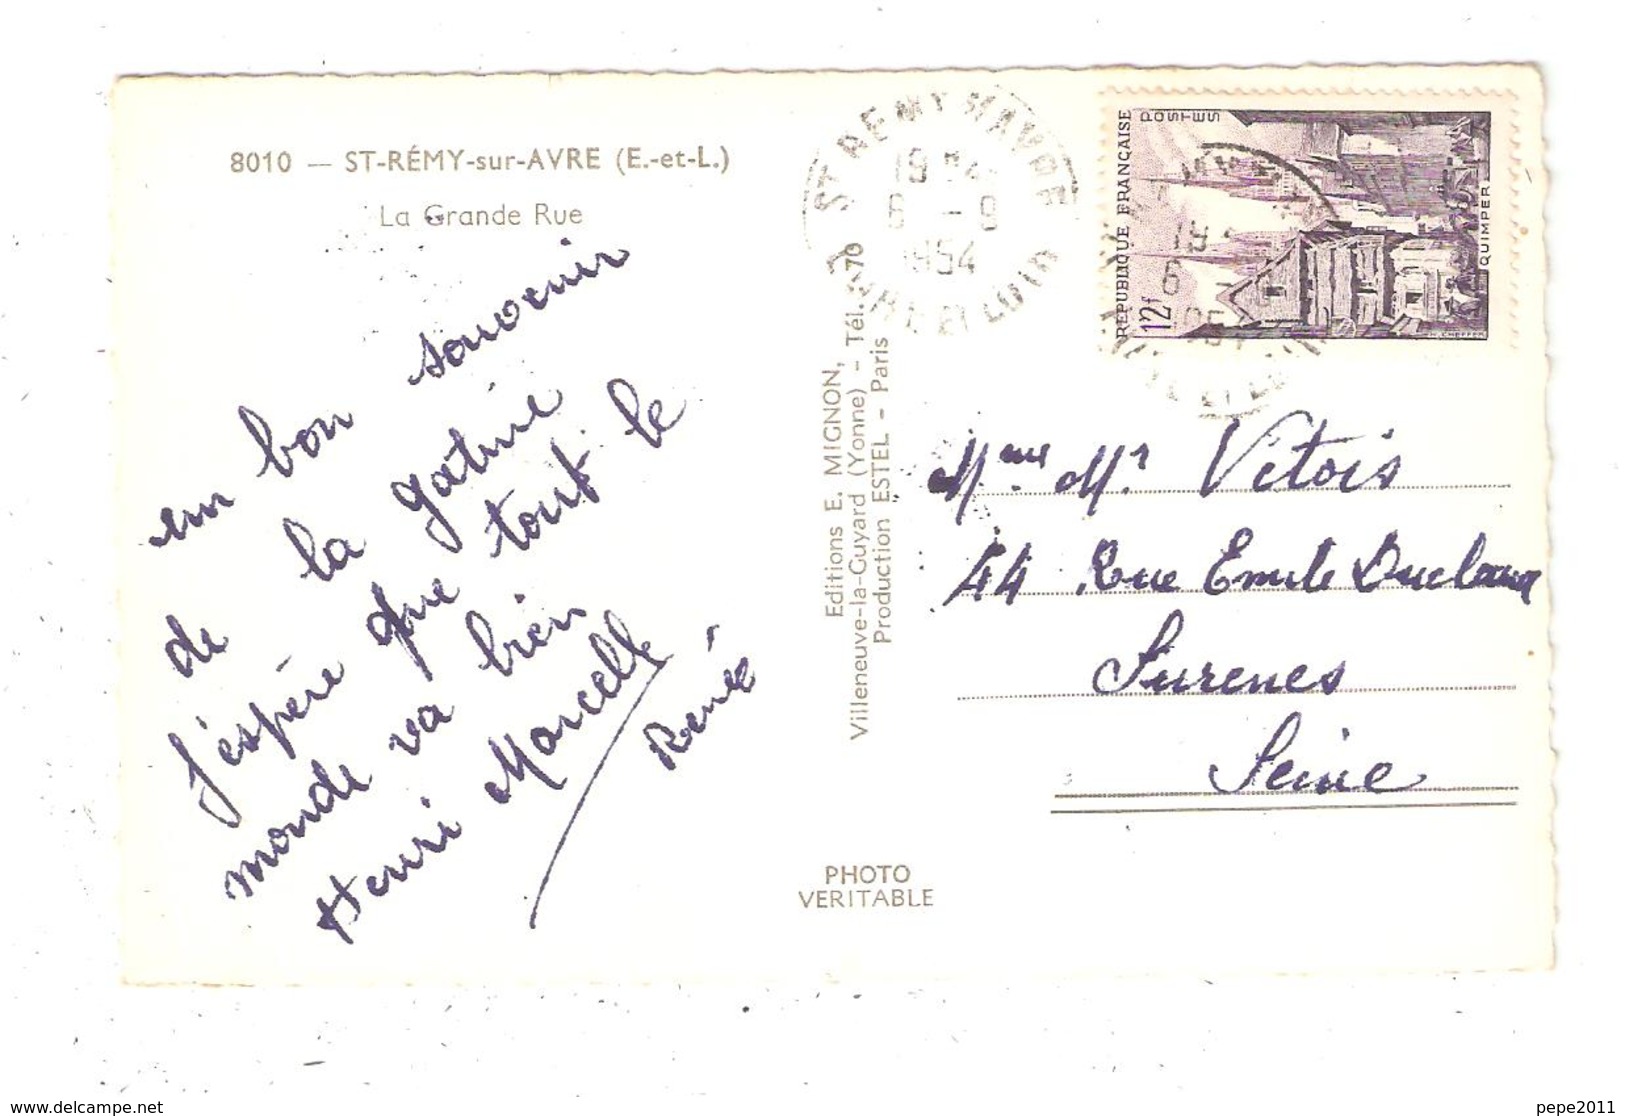 8010 — ST-RÉMY-sur-AVRE (E.-et-L.)
La Grande Rue
un bon souvenir
de la gatine
J'éspére que tout le
monde va bien
Henri Marcelle
René
Editions E. MIGNON,
Villeneuve-la-Guyard (Yonne) - Tél. : 70
Production ESTEL - Paris
PHOTO
VERITABLE
ST REMY S/AVRE
6 - 9
1954
EURE ET LOIR
REPUBLIQUE FRANÇAISE
POSTES
12F
QUIMPER
CH. CHEFFER
Mme Mr Vitois
44 Rue Emile Duclaux
Surenes
Seine
www.delcampe.net
pepe2011